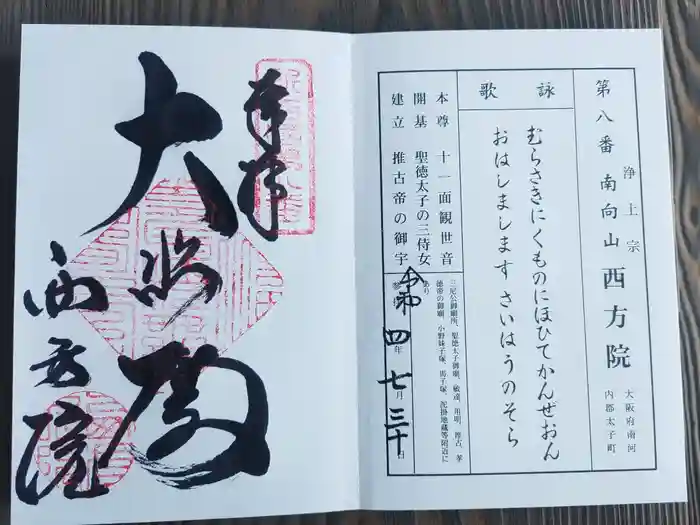 第八番 浄土宗 南向山 西方院 大阪府南河内郡太子町
詠歌
むらさきにくものにほひてかんぜおん
おはしまします さいはうのそら
本尊 十一面観世音
開基 聖徳太子の三侍女
建立 推古帝の御宇
三尼公御廟所、聖徳太子御廟、敏達、用明、推古、孝
徳帝の御廟、小野妹子塚、馬子塚、泥掛地蔵等附近に
あり
令和四年七月三十日
奉拝
大悲殿
西方院